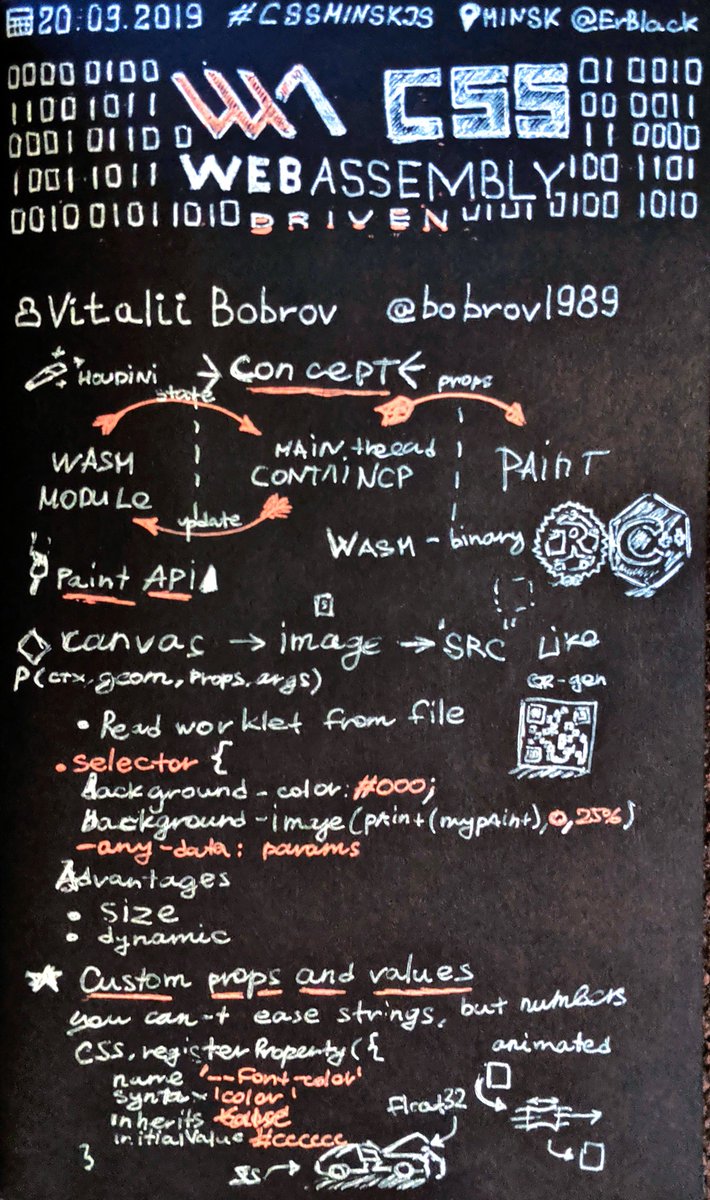 20.09.2019 #CSSMINSKJS MINSK @ErBlack
0000 0100 WA CSS 01 0010
1100 1011 00 0011
0001 0110 0 11 0000
1001 1011 WEBASSEMBLY 100 1101
0010 0101 1010 DRIVEN 0100 1010
Vitalii Bobrov @bobrov1989
HOUDINI → Concept
state props
WASM MODULE
MAIN thread
CONTAINCP
PAinT
update
WASM - binary R C++
Paint API
canvas → image → "SRC" Like
P(ctx, geom, props, args) QR-gen
• Read worklet from file
• selector {
background-color: #000;
background-image(paint(mypaint), 0, 25%)
-any-data: params
Advantages
• Size
• dynamic
Custom props and values
you can-t ease strings, but numbers
CSS.registerProperty({ animated
name '--Font-color'
syntax 'color'
inherits false
initialValue #cccccc
Float32
}
JS →